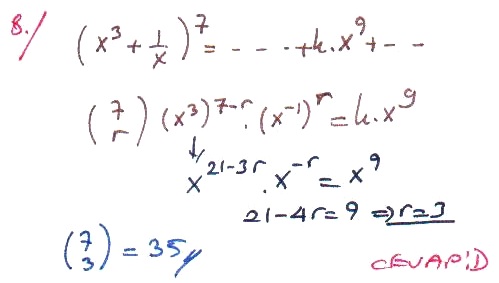 8./ (x³ + 1/x)⁷ = - - - - + k.x⁹ + - -
(7 r) (x³)⁷⁻ʳ . (x⁻¹)ʳ = k.x⁹
↓
x²¹⁻³ʳ . x⁻ʳ = x⁹
21-4r=9 ⇒ r=3
(7 3) = 35//
CEVAP:D